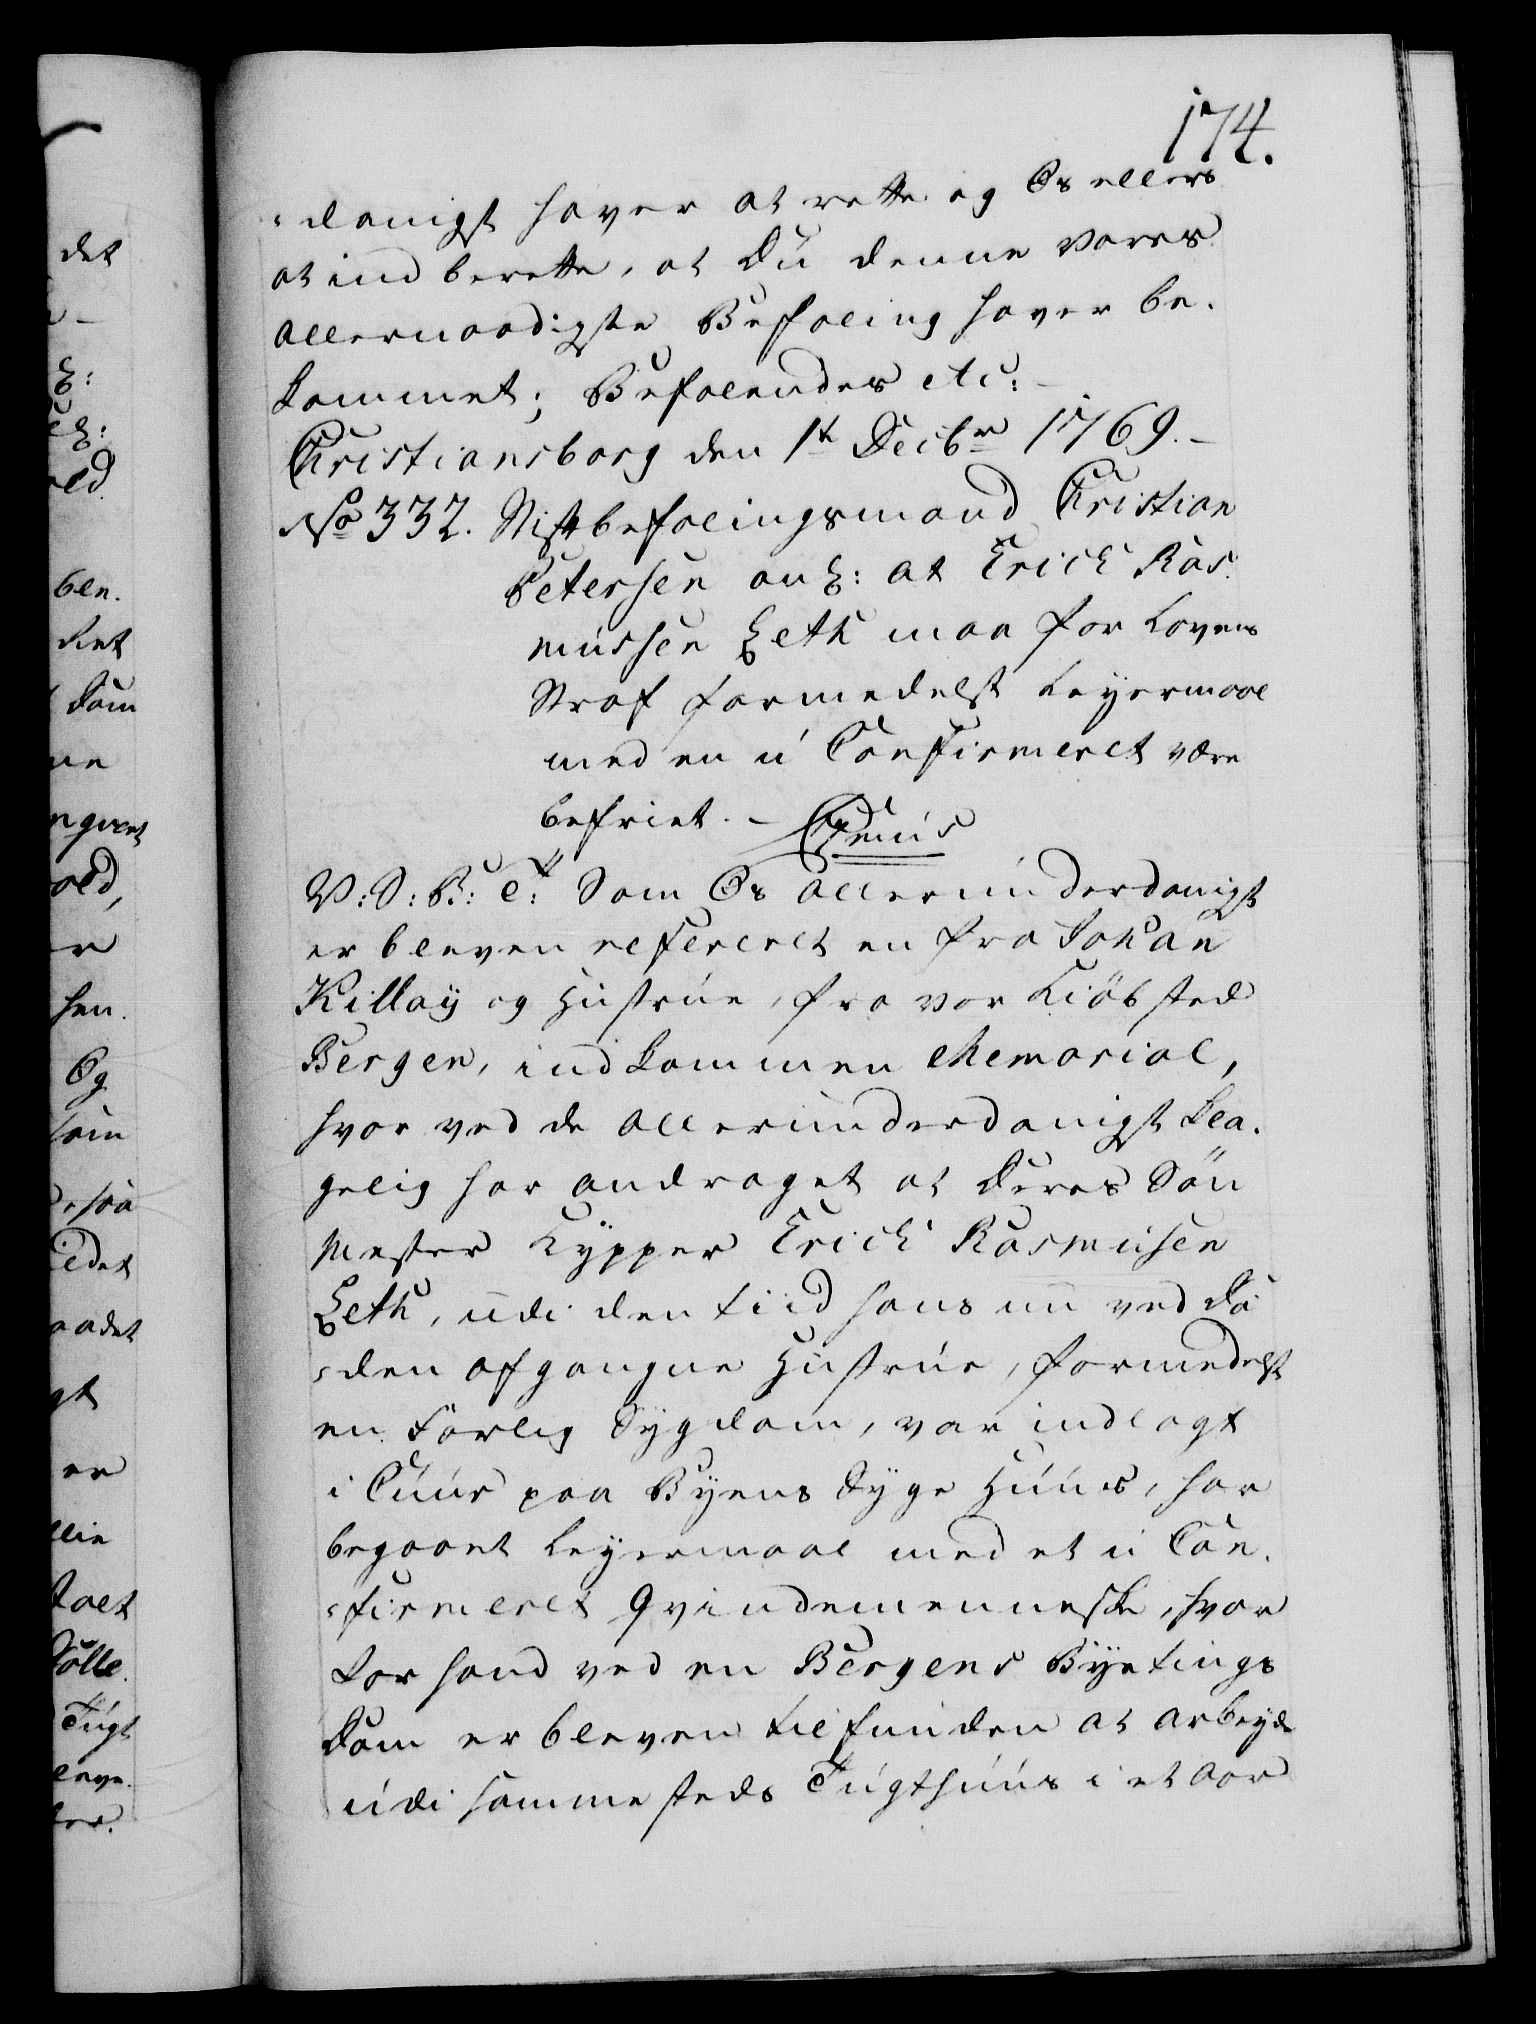 174.
-danigst haver at rette. og Os ellers
at ind berette, at Du denne vores
allernaadigste Befaling haver be-
kommet; Befalendes etc: -
Christiansborg den 1t Decbr 1769. -
No 332. Stiftbefalingsmand Christian
Petersen ank: at Erich Ras-
mussen Zeth maa for Lovens
Straf formedelst Leyermaal
med en u Confirmeret være
befriet. -
V: S: B: e: Som Os allerunderdanigst
er bleven refereret en fra Johan
Killaÿ og Hustrue, fra vor Kiöbsted
Bergen, indkommen Memorial,
hvor ved de allerunderdanigst kla-
gelig har andraget at Deres Sön
Mester Kÿpper Erich Rasmusen
Zeth, udi den tiid hans nu ved Dö
-den afgangne Hustrue, formedelst
en Farlig Sÿgdom, var indlagt
i Cuur paa Byens Syge Huus, har
begaaet Leyermaal med et u Con-
-firmeret Qvindemenneske, hvor
for hand ved en Bergens Bÿetings
Dom er bleven tilfunden at arbeyde
udi sammesteds Tugthuus i et Aar
det
ben.
ket
Dom
ne
old,
er
hen.
Og
som
er
Tugt